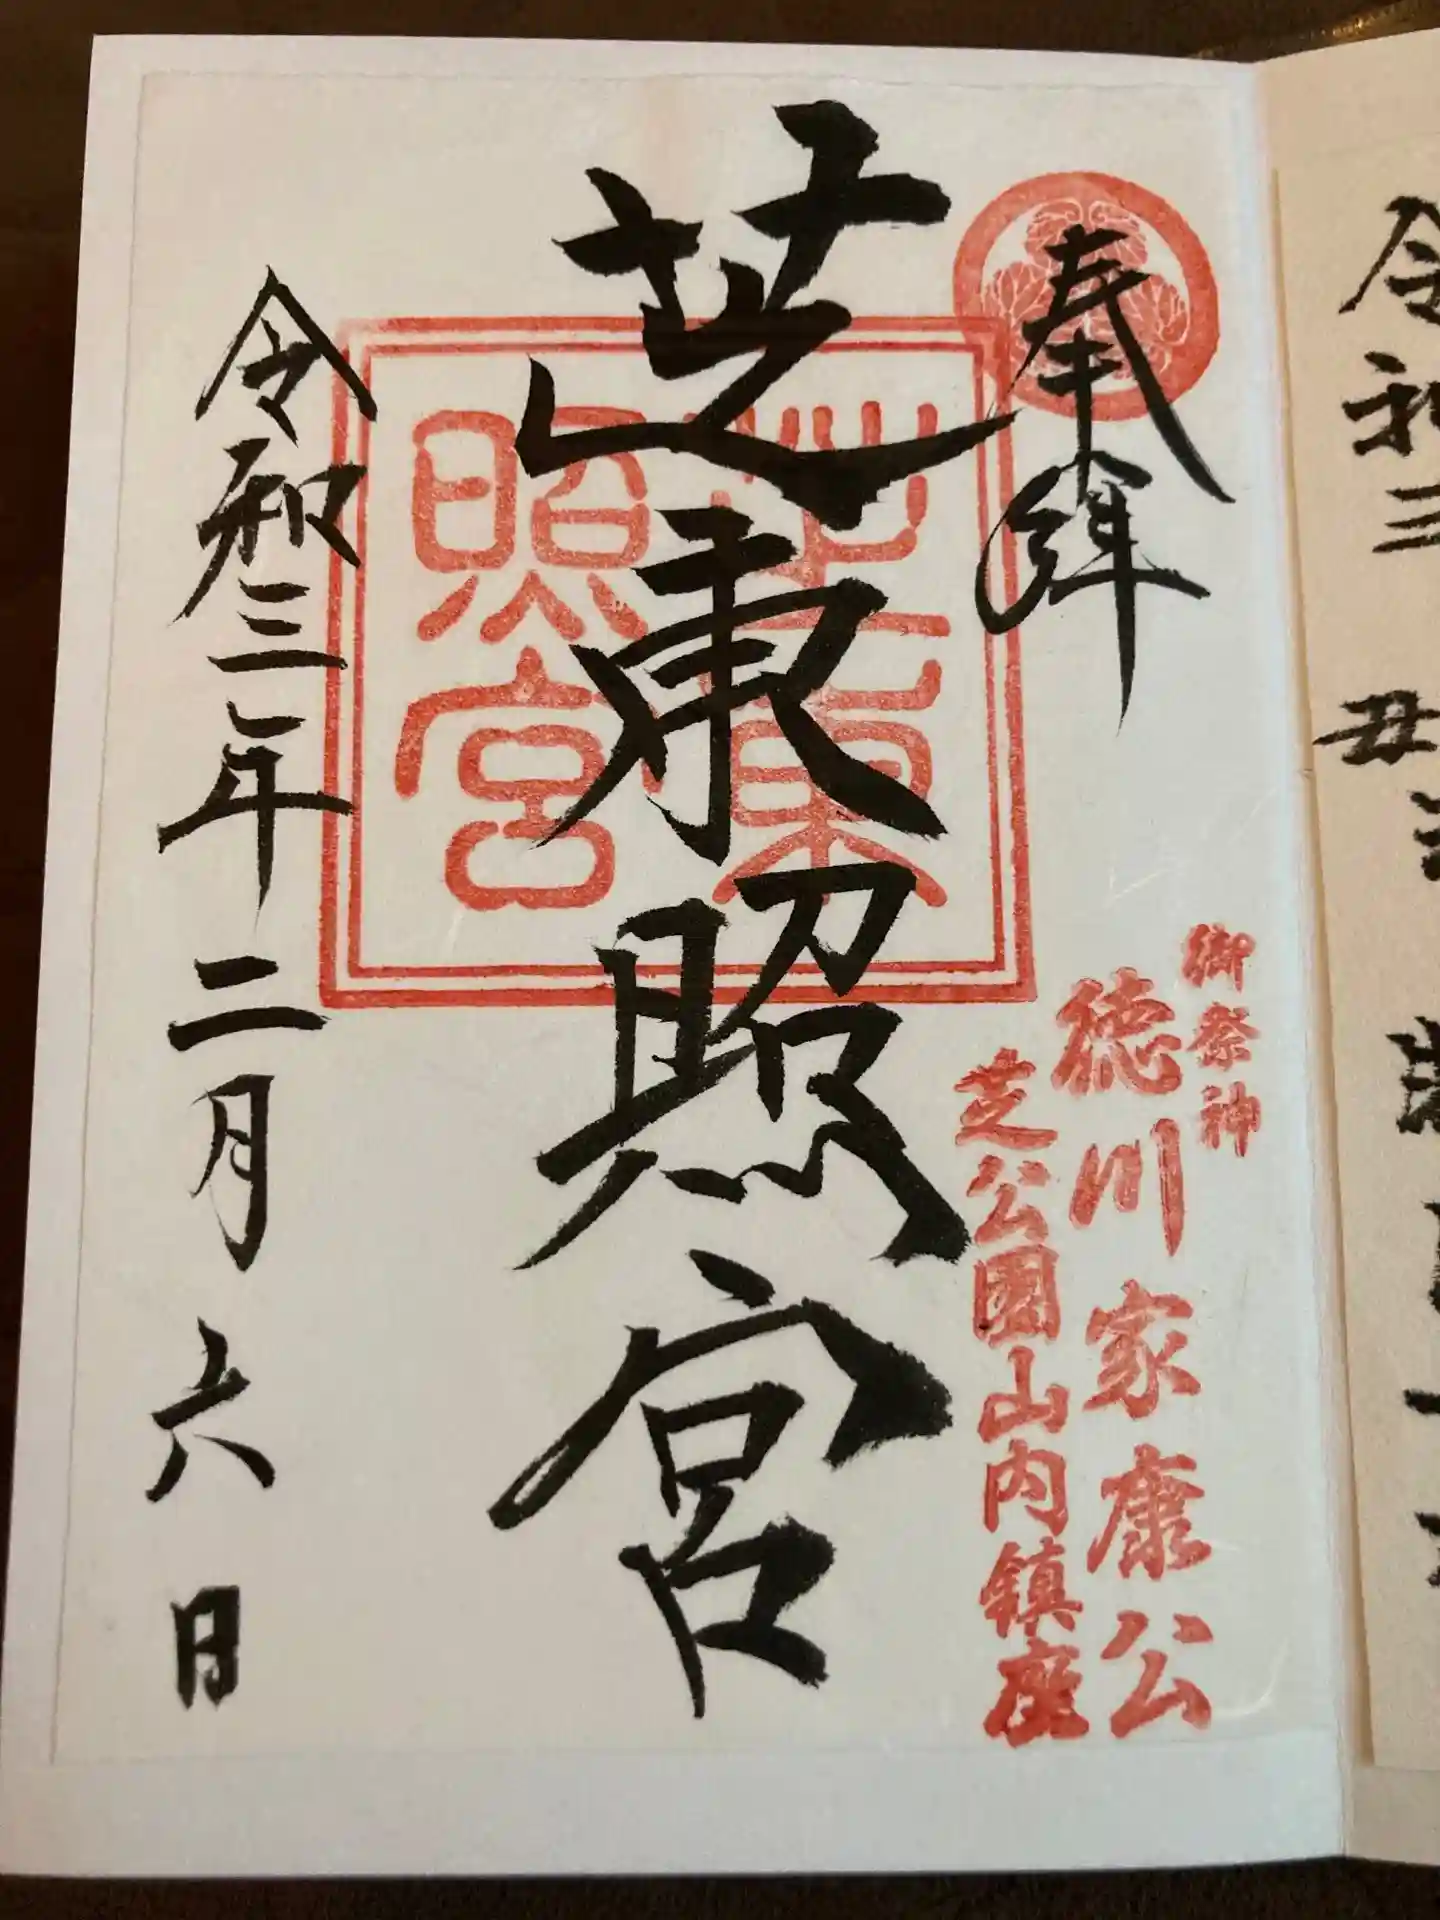 奉拝
御祭神
徳川家康公
芝公園山内鎮座
芝東照宮
芝東
照宮
令和三年二月六日
令和三